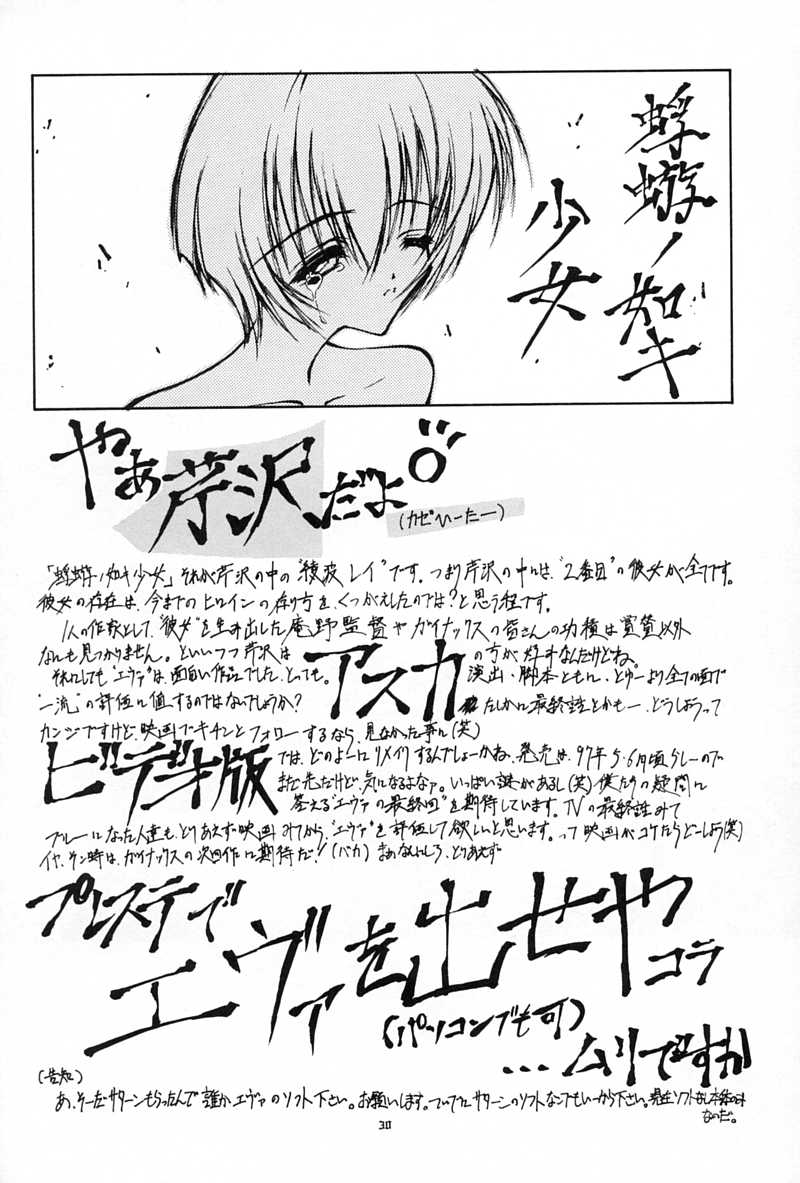 蜉蝣ノ如キ
少女
やぁ芹沢だよ
(カゼひーたー)
「蜉蝣ノ如キ少女」それが芹沢の中の"綾波 レイ"です。つまり芹沢の中には、"2番目"の彼女が全てです。
彼女の存在は、今までのヒロインの在り方を、くつがえしたのでは?と思う程です。
1人の作家として、"彼女"を生み出した庵野監督やガイナックスの皆さんの功積は賞賛以外
なにも見つかりません。といいつつ芹沢は アスカ の方が好きなんだけどね。
それにしても"エヴァ"は、面白い作品でした、とっても。 演出・脚本ともに、とゆーより全ての面で
"一流"の評価に値するのではないでしょうか? たしかに最終話とかもー、どうしようって
カンジですけど、映画でキチンとフォローするなら、見なかった事に(笑)
ビデオ版 では、どのよーにリメイクするんでしょーかね。発売は、97年5・6月頃らしーので
まだ先だけど、気になるよなァ。いっぱい謎があるし(笑)僕たちの疑問に
答える"エヴァの最終回"を期待しています。TVの最終話みて
ブルーになった人達も、とりあえず映画みてから、"エヴァ"を評価して欲しいと思います。って映画がコケたらどーしよう(笑)
イヤ、そん時は、ガイナックスの次回作に期待だ!(バカ) まぁなんにしろ、とりあえず
プレステで
エヴァを出せや
コラ
(パソコンでも可)
...ムリですか
(告知)
あ、そーだサターンもらったんで誰かエヴァのソフト下さい。お願いします。ついでにサターンのソフトなんでもいーから下さい。現在ソフトなし本体のみ
なのだ。
30